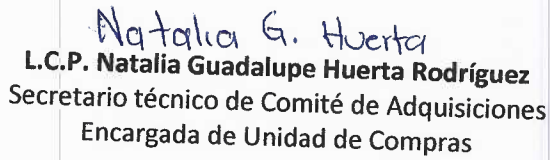 Natalia G. Huerta
L.C.P. Natalia Guadalupe Huerta Rodríguez
Secretario técnico de Comité de Adquisiciones
Encargada de Unidad de Compras